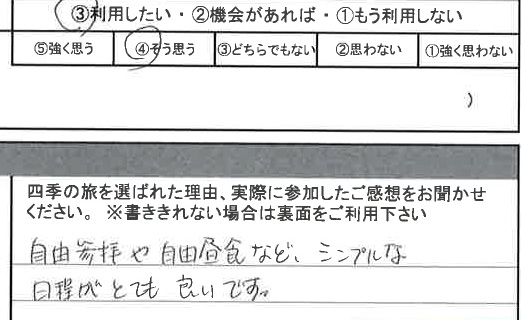 ③利用したい・②機会があれば・①もう利用しない
⑤強く思う ④そう思う ③どちらでもない ②思わない ①強く思わない
)
四季の旅を選ばれた理由、実際に参加したご感想をお聞かせ
ください。 ※書ききれない場合は裏面をご利用下さい
自由参拝や自由昼食など、シンプルな
日程がとても良いです。